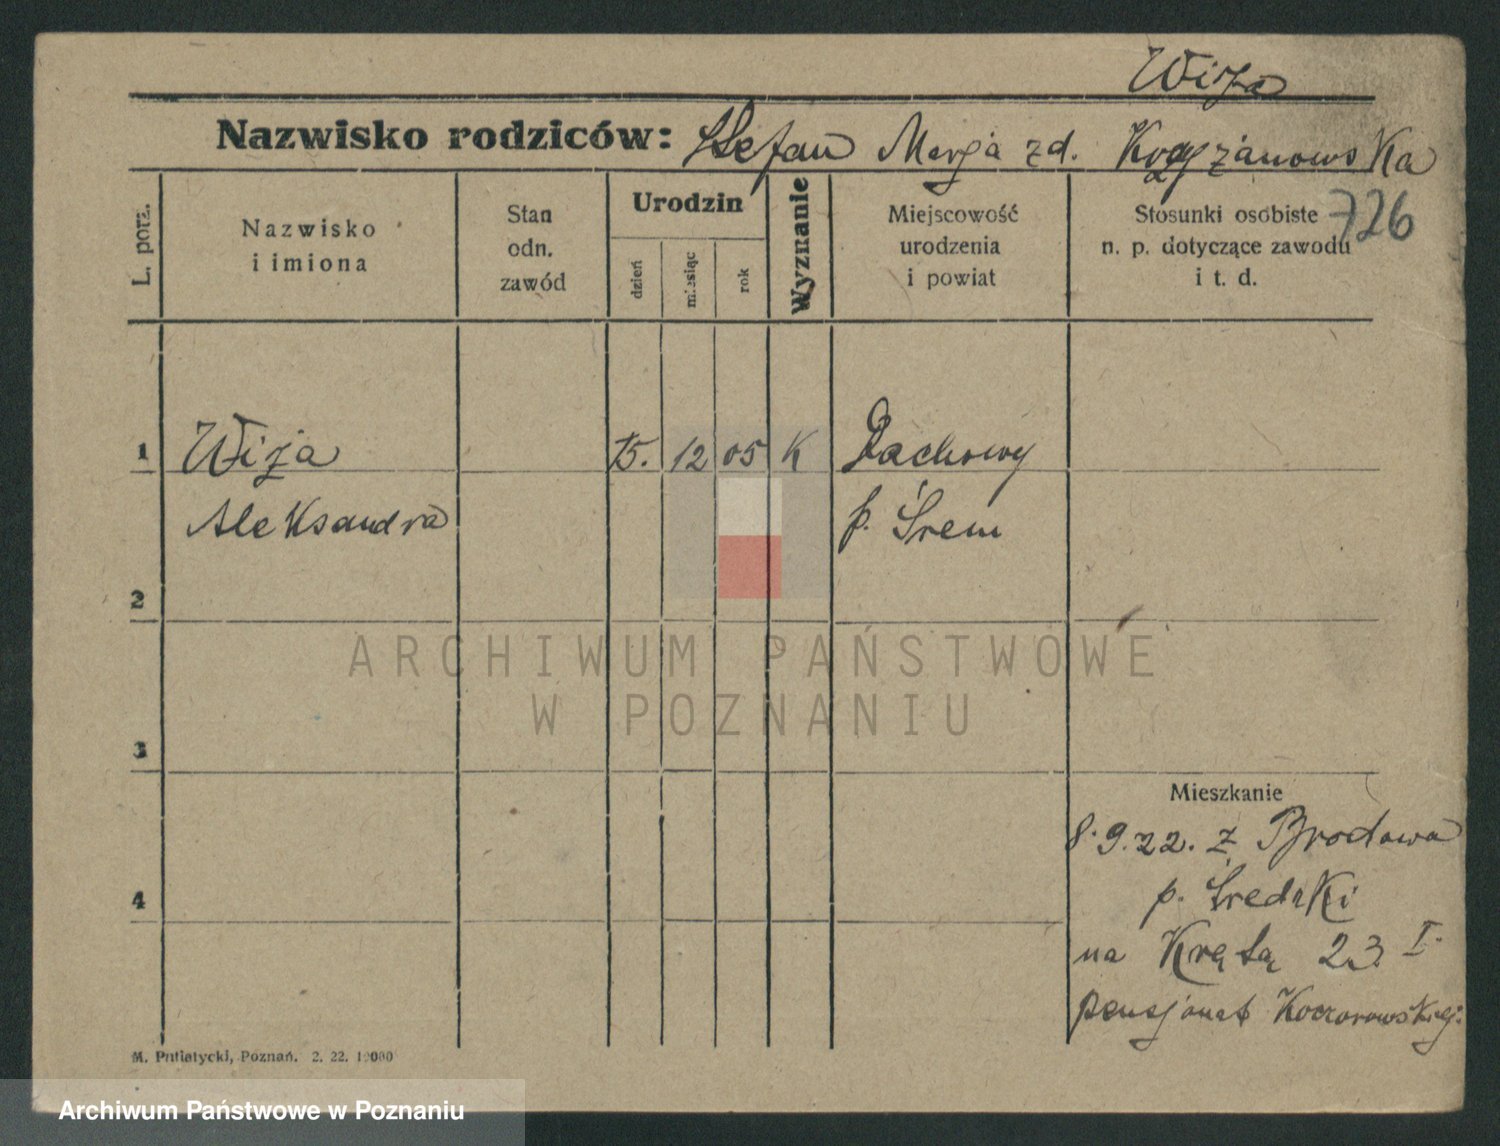 Wiza
Nazwisko rodziców: Stefan Marja zd. Krzyżanowska
726
L. porz.
Nazwisko i imiona
Stan odn. zawód
Urodzin
dzień
miesiąc
rok
Wyznanie
Miejscowość urodzenia i powiat
Stosunki osobiste n. p. dotyczące zawodu i t. d.
1 Wiza 15. 12 05 K Dachowy
Aleksandra p. Śrem
2
3
Mieszkanie
8.9.22. z Brodowa
p. Średzki
4
na Krętą 23 I.
pensjonat Koczorowskiej.
M. Putiatycki, Poznań. 2. 22. 10000
ARCHIWUM PAŃSTWOWE
W POZNANIU
Archiwum Państwowe w Poznaniu